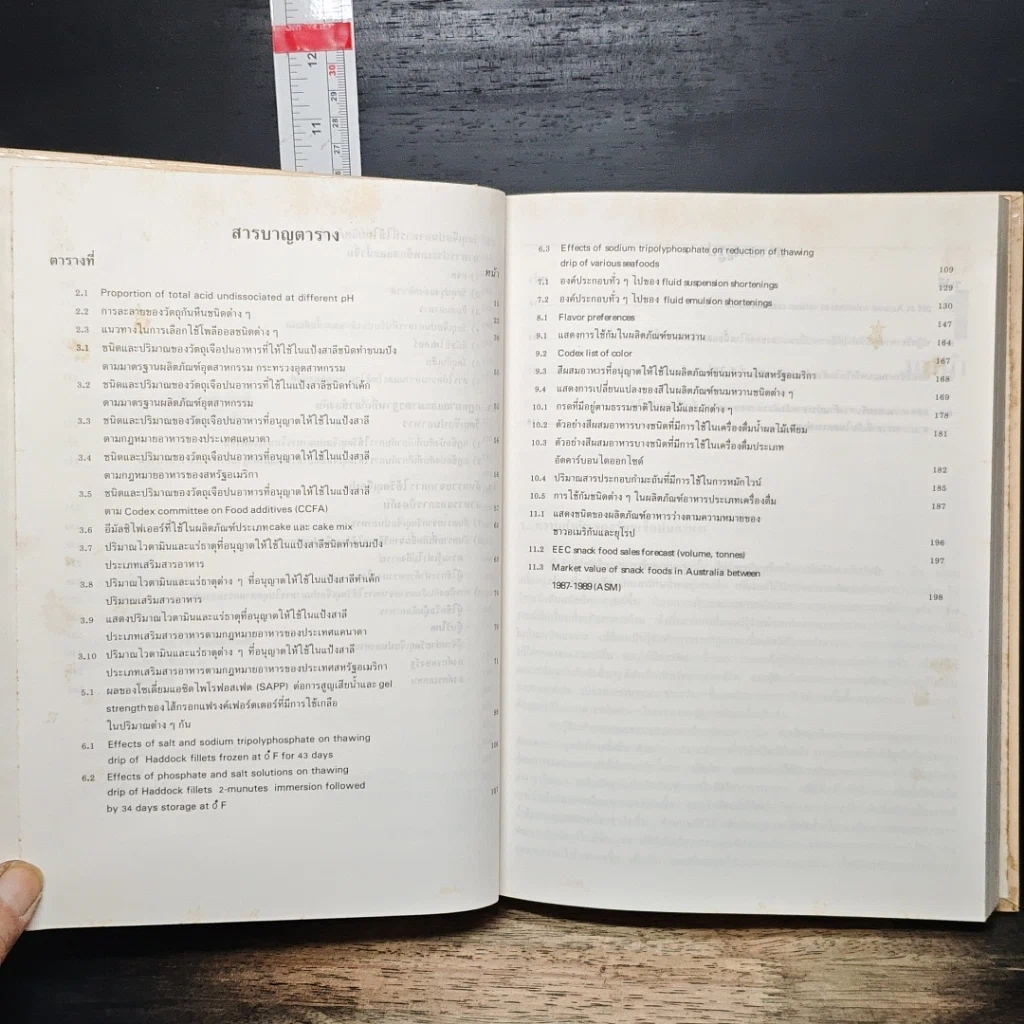 สารบาญตาราง
ตารางที่
หน้า
2.1 Proportion of total acid undissociated at different pH
2.2 การละลายของวัตถุกันหืนชนิดต่าง ๆ
2.3 แนวทางในการเลือกใช้โพลีออลชนิดต่าง ๆ
3.1 ชนิดและปริมาณของวัตถุเจือปนอาหารที่ให้ใช้ในแป้งสาลีชนิดทำขนมปัง
ตามมาตรฐานผลิตภัณฑ์อุตสาหกรรม กระทรวงอุตสาหกรรม
3.2 ชนิดและปริมาณของวัตถุเจือปนอาหารที่ให้ใช้ในแป้งสาลีชนิดทำเค้ก
ตามมาตรฐานผลิตภัณฑ์อุตสาหกรรม
3.3 ชนิดและปริมาณของวัตถุเจือปนอาหารที่อนุญาตให้ใช้ในแป้งสาลี
ตามกฎหมายอาหารของประเทศคานาดา
3.4 ชนิดและปริมาณของวัตถุเจือปนอาหารที่อนุญาตให้ใช้ในแป้งสาลี
ตามกฎหมายอาหารของสหรัฐอเมริกา
3.5 ชนิดและปริมาณของวัตถุเจือปนอาหารที่อนุญาตให้ใช้ในแป้งสาลี
ตาม Codex committee on Food additives (CCFA)
3.6 อีมัลซิไฟเออร์ที่ใช้ในผลิตภัณฑ์ประเภท cake และ cake mix
3.7 ปริมาณไวตามินและแร่ธาตุที่อนุญาตให้ใช้ในแป้งสาลีชนิดทำขนมปัง
ประเภทเสริมสารอาหาร
3.8 ปริมาณไวตามินและแร่ธาตุต่าง ๆ ที่อนุญาตให้ใช้ในแป้งสาลีทำเค้ก
ปริมาณเสริมสารอาหาร
3.9 แสดงปริมาณไวตามินและแร่ธาตุที่อนุญาตให้ใช้ในแป้งสาลี
ประเภทเสริมสารอาหารตามกฎหมายอาหารของประเทศแคนาดา
3.10 ปริมาณไวตามินและแร่ธาตุต่าง ๆ ที่อนุญาตให้ใช้ในแป้งสาลี
ประเภทเสริมสารอาหารตามกฎหมายอาหารของประเทศสหรัฐอเมริกา
5.1 ผลของโซเดี่ยมแอซิดไพโรฟอสเฟต (SAPP) ต่อการสูญเสียน้ำและ gel
strength ของไส้กรอกแฟรงค์เฟอร์ตเตอร์ที่มีการใช้เกลือ
ในปริมาณต่าง ๆ กัน
6.1 Effects of salt and sodium tripolyphosphate on thawing
drip of Haddock fillets frozen at 0° F for 43 days
6.2 Effects of phosphate and salt solutions on thawing
drip of Haddock fillets 2-munutes immersion followed
by 34 days storage at 0° F
6.3 Effects of sodium tripolyphosphate on reduction of thawing
drip of various seafoods 109
7.1 องค์ประกอบทั่ว ๆ ไปของ fluid suspension shortenings 129
7.2 องค์ประกอบทั่ว ๆ ไปของ fluid emulsion shortenings 130
8.1 Flavor preferences 147
9.1 แสดงการใช้กัมในผลิตภัณฑ์ขนมหวาน 164
9.2 Codex list of color 167
9.3 สีผสมอาหารที่อนุญาตให้ใช้ในผลิตภัณฑ์ขนมหวานในสหรัฐอเมริกา 168
9.4 แสดงการเปลี่ยนแปลงของสีในผลิตภัณฑ์ขนมหวานชนิดต่าง ๆ 169
10.1 กรดที่มีอยู่ตามธรรมชาติในผลไม้และผักต่าง ๆ 178
10.2 ตัวอย่างสีผสมอาหารบางชนิดที่มีการใช้ในเครื่องดื่มน้ำผลไม้เทียม 181
10.3 ตัวอย่างสีผสมอาหารบางชนิดที่มีการใช้ในเครื่องดื่มประเภท
อัดคาร์บอนไดออกไซด์ 182
10.4 ปริมาณสารประกอบกำมะถันที่มีการใช้ในการหมักไวน์ 185
10.5 การใช้กัมชนิดต่าง ๆ ในผลิตภัณฑ์อาหารประเภทเครื่องดื่ม 187
11.1 แสดงชนิดของผลิตภัณฑ์อาหารว่างตามความหมายของ
ชาวอเมริกันและยุโรป 196
11.2 EEC snack food sales forecast (volume, tonnes) 197
11.3 Market value of snack foods in Australia between
1987-1989 (ASM) 198